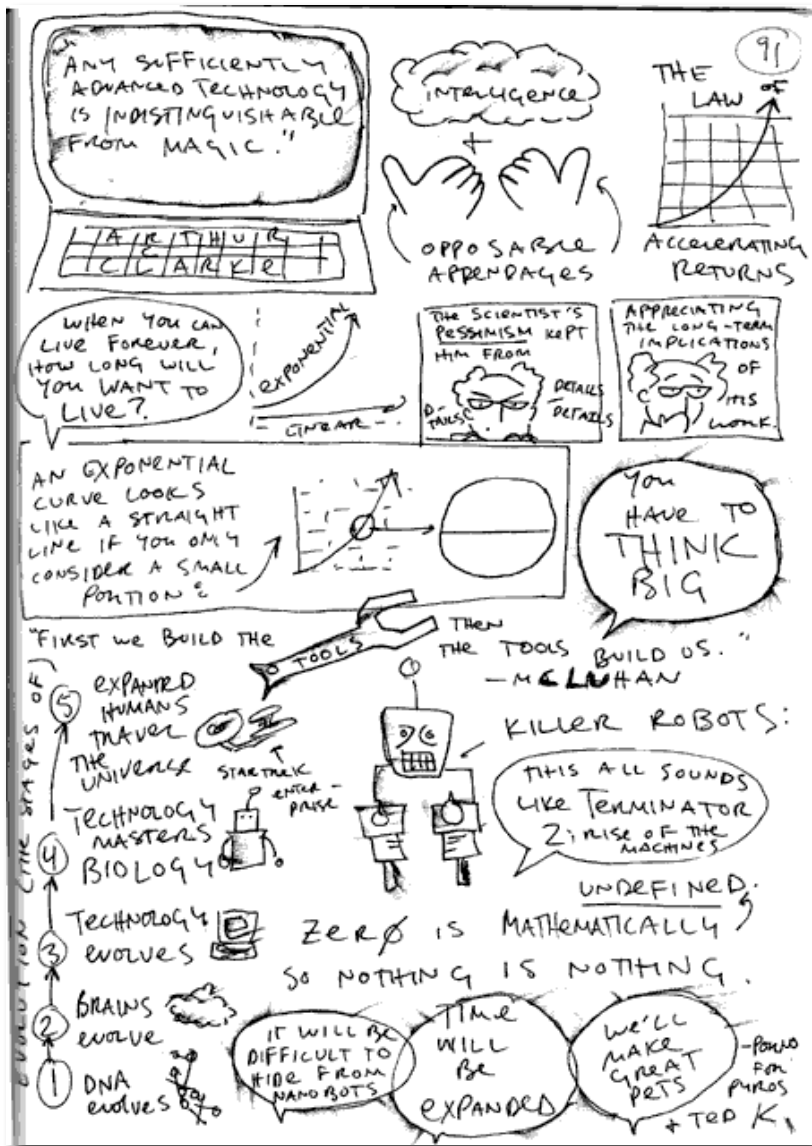 91
"ANY SUFFICIENTLY
ADVANCED TECHNOLOGY
IS INDISTINGUISHABLE
FROM MAGIC."
ARTHUR
CLARKE
INTELLIGENCE
+
OPPOSABLE
APPENDAGES
THE
LAW OF
ACCELERATING
RETURNS
WHEN YOU CAN
LIVE FOREVER,
HOW LONG WILL
YOU WANT TO
LIVE?
EXPONENTIAL
LINEAR
THE SCIENTIST'S
PESSIMISM KEPT
HIM FROM
DETAILS
DETAILS
APPRECIATING
THE LONG-TERM
IMPLICATIONS
OF
HIS
WORK.
AN EXPONENTIAL
CURVE LOOKS
LIKE A STRAIGHT
LINE IF YOU ONLY
CONSIDER A SMALL
PORTION:
YOU
HAVE TO
THINK
BIG
"FIRST WE BUILD THE
TOOLS
THEN
THE TOOLS
BUILD US."
- MCLUHAN
EVOLUTION (THE STAGES OF)
5 EXPANDED
HUMANS
TRAVEL
THE
UNIVERSE
STAR TREK
ENTER-
PRISE
4 TECHNOLOGY
MASTERS
BIOLOGY
3 TECHNOLOGY
EVOLVES
2 BRAINS
EVOLVE
1 DNA
EVOLVES
KILLER ROBOTS:
THIS ALL SOUNDS
LIKE TERMINATOR
2: RISE OF THE
MACHINES
UNDEFINED.
ZERØ IS MATHEMATICALLY
SO NOTHING IS NOTHING.
IT WILL BE
DIFFICULT TO
HIDE FROM
NANOBOTS
TIME
WILL
BE
EXPANDED
WE'LL
MAKE
GREAT
PETS
-PORNO
FOR
PYROS
+ TED K.